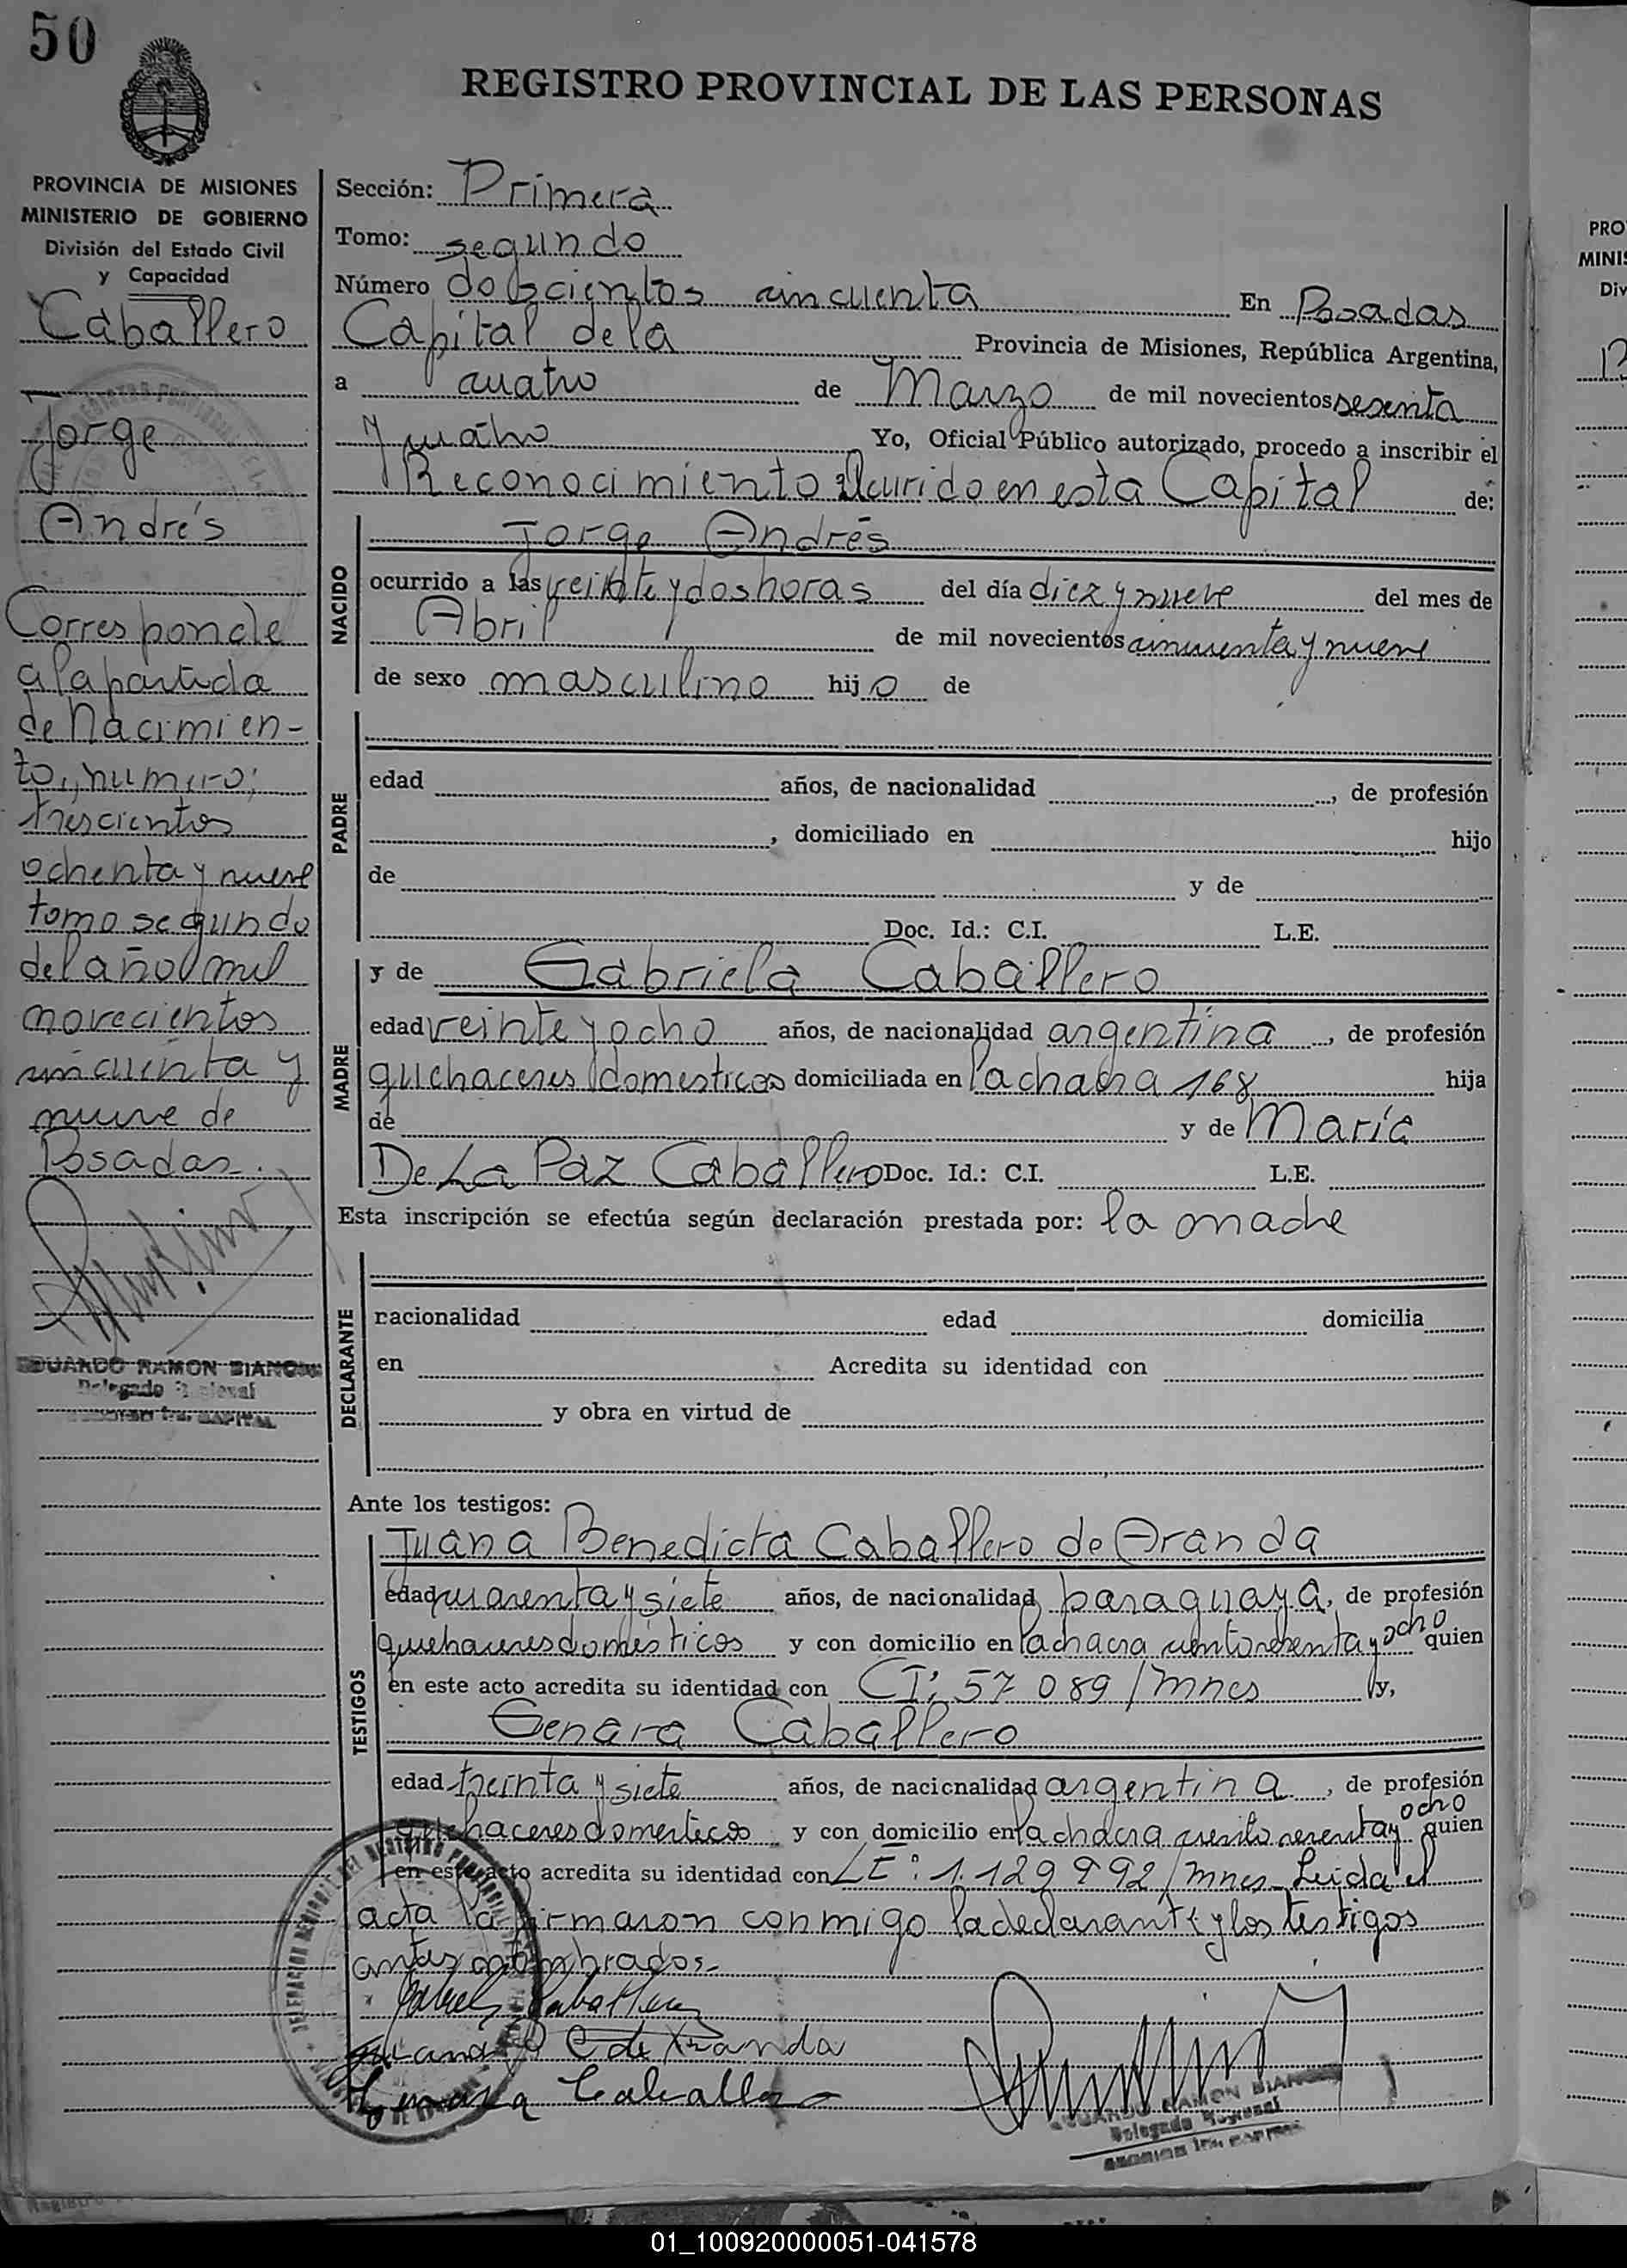 50
REGISTRO PROVINCIAL DE LAS PERSONAS
PROVINCIA DE MISIONES
MINISTERIO DE GOBIERNO
División del Estado Civil
y Capacidad
Caballero
Jorge
Andrés
Corresponde
a la partida
de Nacimien-
to, numero;
trescientos
ochenta y nueve
tomo segundo
del año mil
novecientos
cincuenta y
nueve de
Posadas.
EDUARDO RAMON BIANCHI
Delegado Regional
CAPITAL
Sección: Primera
Tomo: segundo
Número doscientos cincuenta En Posadas
Capital de la Provincia de Misiones, República Argentina,
a cuatro de Marzo de mil novecientos sesenta
y cuatro Yo, Oficial Público autorizado, procedo a inscribir el
Reconocimiento Ocurido en esta Capital de:
NACIDO
Jorge Andrés
ocurrido a las veinte y dos horas del día diez y nueve del mes de
Abril de mil novecientos cincuenta y nueve
de sexo masculino hijo de
PADRE
edad años, de nacionalidad , de profesión
, domiciliado en hijo
de y de
Doc. Id.: C.I. L.E.
MADRE
y de Gabriela Caballero
edad veinte y ocho años, de nacionalidad argentina , de profesión
quehaceres domesticos domiciliada en la chacra 168 hija
de y de María
De La Paz Caballero Doc. Id.: C.I. L.E.
Esta inscripción se efectúa según declaración prestada por: la madre
DECLARANTE
nacionalidad edad domicilia
en Acredita su identidad con
y obra en virtud de
Ante los testigos:
TESTIGOS
Juana Benedicta Caballero de Aranda
edad cuarenta y siete años, de nacionalidad paraguaya, de profesión
quehaceres domésticos y con domicilio en la chacra ciento noventa y ocho quien
en este acto acredita su identidad con CI; 57 089/mnes y,
Genara Caballero
edad treinta y siete años, de nacionalidad argentina , de profesión
quehaceres domesticos y con domicilio en la chacra ciento noventa y ocho quien
en este acto acredita su identidad con LE: 1.129 992/mnes_Leida el
acta la firmaron conmigo la declarante y los testigos
antes nombrados._
Gabriela Caballero
Juana B C de Aranda
Genara Caballero
EDUARDO RAMON BIANCHI
Delegado Regional
PRO
MINIS
Div
01_100920000051-041578